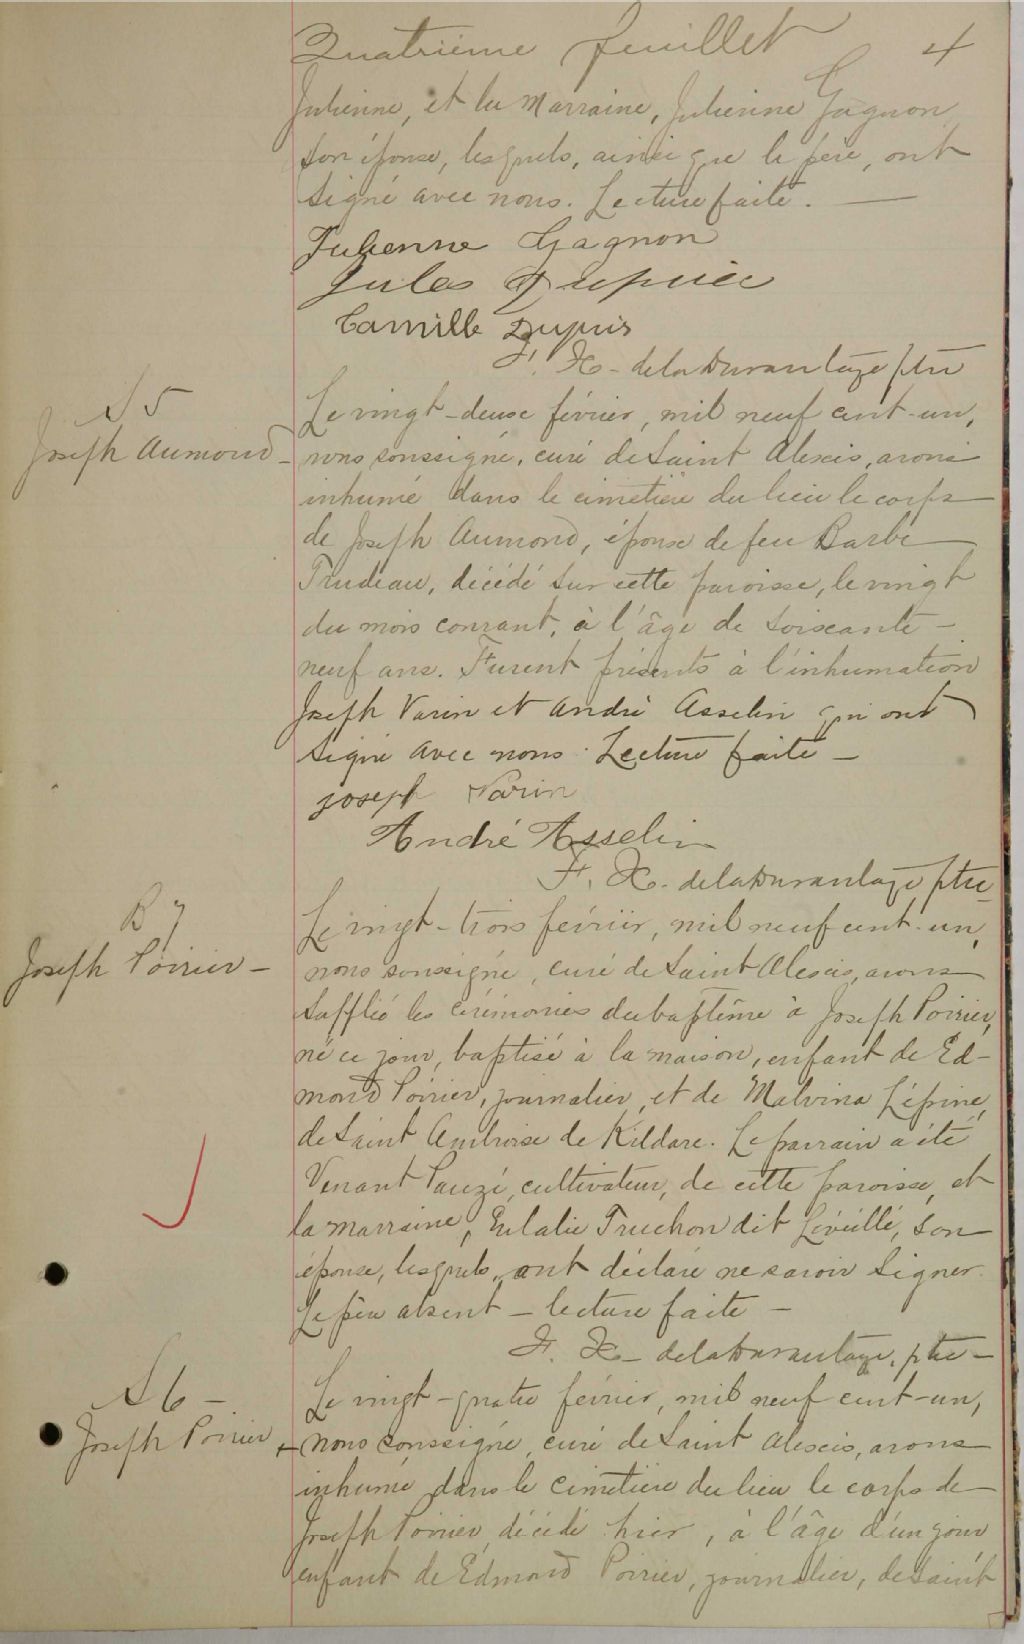 Quatrième feuillet 4
Julienne, et la marraine, Julienne Gagnon
son épouse, lesquels, ainsi que le père, ont
signé avec nous. Lecture faite. —
Julienne Gagnon
Jules Dupuis
Camille Dupuis
F. X. de la Durantaye ptre
S 5
Joseph Aumond –
Le vingt-deux février, mil neuf cent-un,
nous soussigné, curé de Saint Alexis, avons
inhumé dans le cimetière du lieu le corps
de Joseph Aumond, époux de feu Barbe
Trudeau, décédé sur cette paroisse, le vingt
du mois courant, à l'âge de soixante-
neuf ans. Furent présents à l'inhumation
Joseph Varin et André Asselin qui ont
signé avec nous. Lecture faite –
Joseph Varin
André Asselin
F. X. de la Durantaye, ptre
B 7
Joseph Poirier –
Le vingt-trois février, mil neuf cent-un,
nous soussigné, curé de Saint Alexis, avons
supplié les cérémonies du baptême à Joseph Poirier,
né ce jour, baptisé à la maison, enfant de Ed-
mond Poirier, journalier, et de Malvina Lépine,
de Saint Ambroise de Kildare. Le parrain a été
Venant Pauzé, cultivateur, de cette paroisse, et
la marraine, Eulalie Truchon dit Léveillé, son
épouse, lesquels, ont déclaré ne savoir signer.
Le père absent – lecture faite –
F. X – de la Durantaye, ptre –
S 6 –
Joseph Poirier –
Le vingt-quatre février, mil neuf cent-un,
nous soussigné, curé de Saint Alexis, avons
inhumé dans le cimetière du lieu le corps de
Joseph Poirier, décédé hier, à l'âge d'un jour
enfant de Edmond Poirier, journalier, de Saint